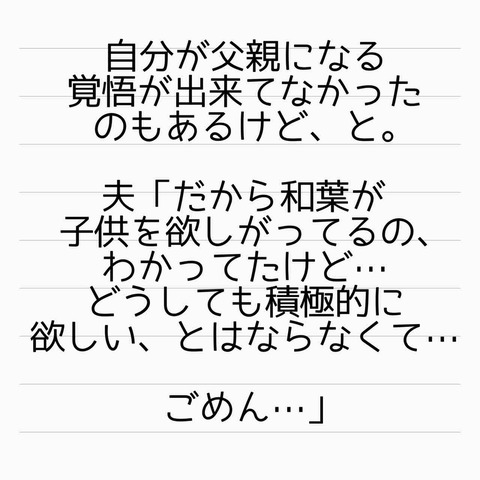 自分が父親になる
覚悟が出来てなかった
のもあるけど、と。
夫「だから和葉が
子供を欲しがってるの、
わかってたけど…
どうしても積極的に
欲しい、とはならなくて…
ごめん…」